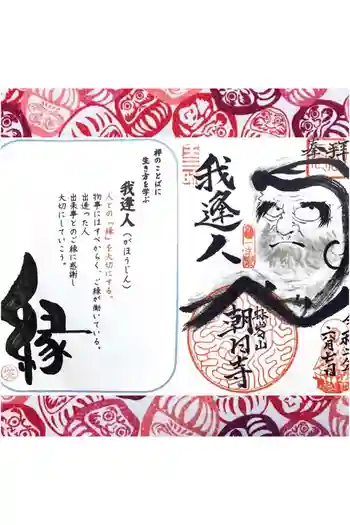 奉拝
我逢人
朝日寺
六月七日
禅のことばに
生き方を学ぶ
我逢人（がほうじん）
人との「縁」を大切にする。
物事にはすべからく、ご縁が働いている。
出逢った人
出来事とのご縁に感謝し
大切にしていこう。
縁